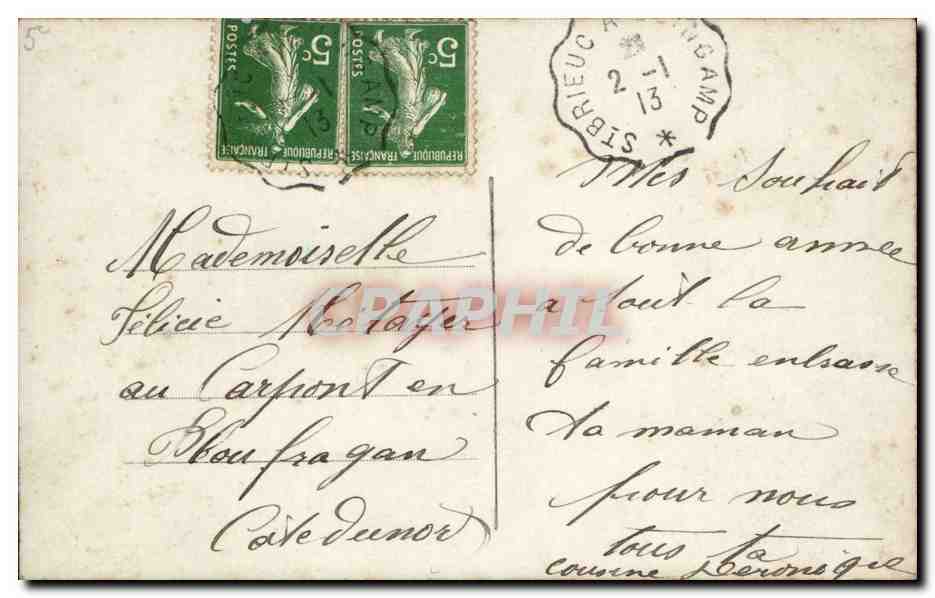 5c
5c POSTES REPUBLIQUE FRANÇAISE
5c POSTES REPUBLIQUE FRANÇAISE
ST BRIEUC A GUINGAMP
2 -1
13
Mademoiselle
Félicie Metayer
au Carpont en
Ploufragan
Côte du nord
Mes Souhait
de bonne année
a tout la
famille enbrasse
ta maman
pour nous
tous ta
cousine Veronique
CPAPHIL